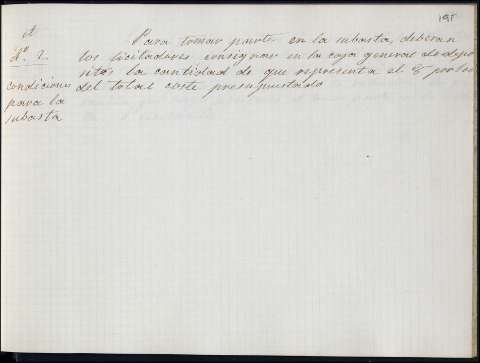 195
Para tomar parte en la subasta, deberan
los licitadores consignar en la caja general de depo
sitos la cantidad de que representa el 5 por 100
del total coste presupuestado
condiciones
para la
subasta